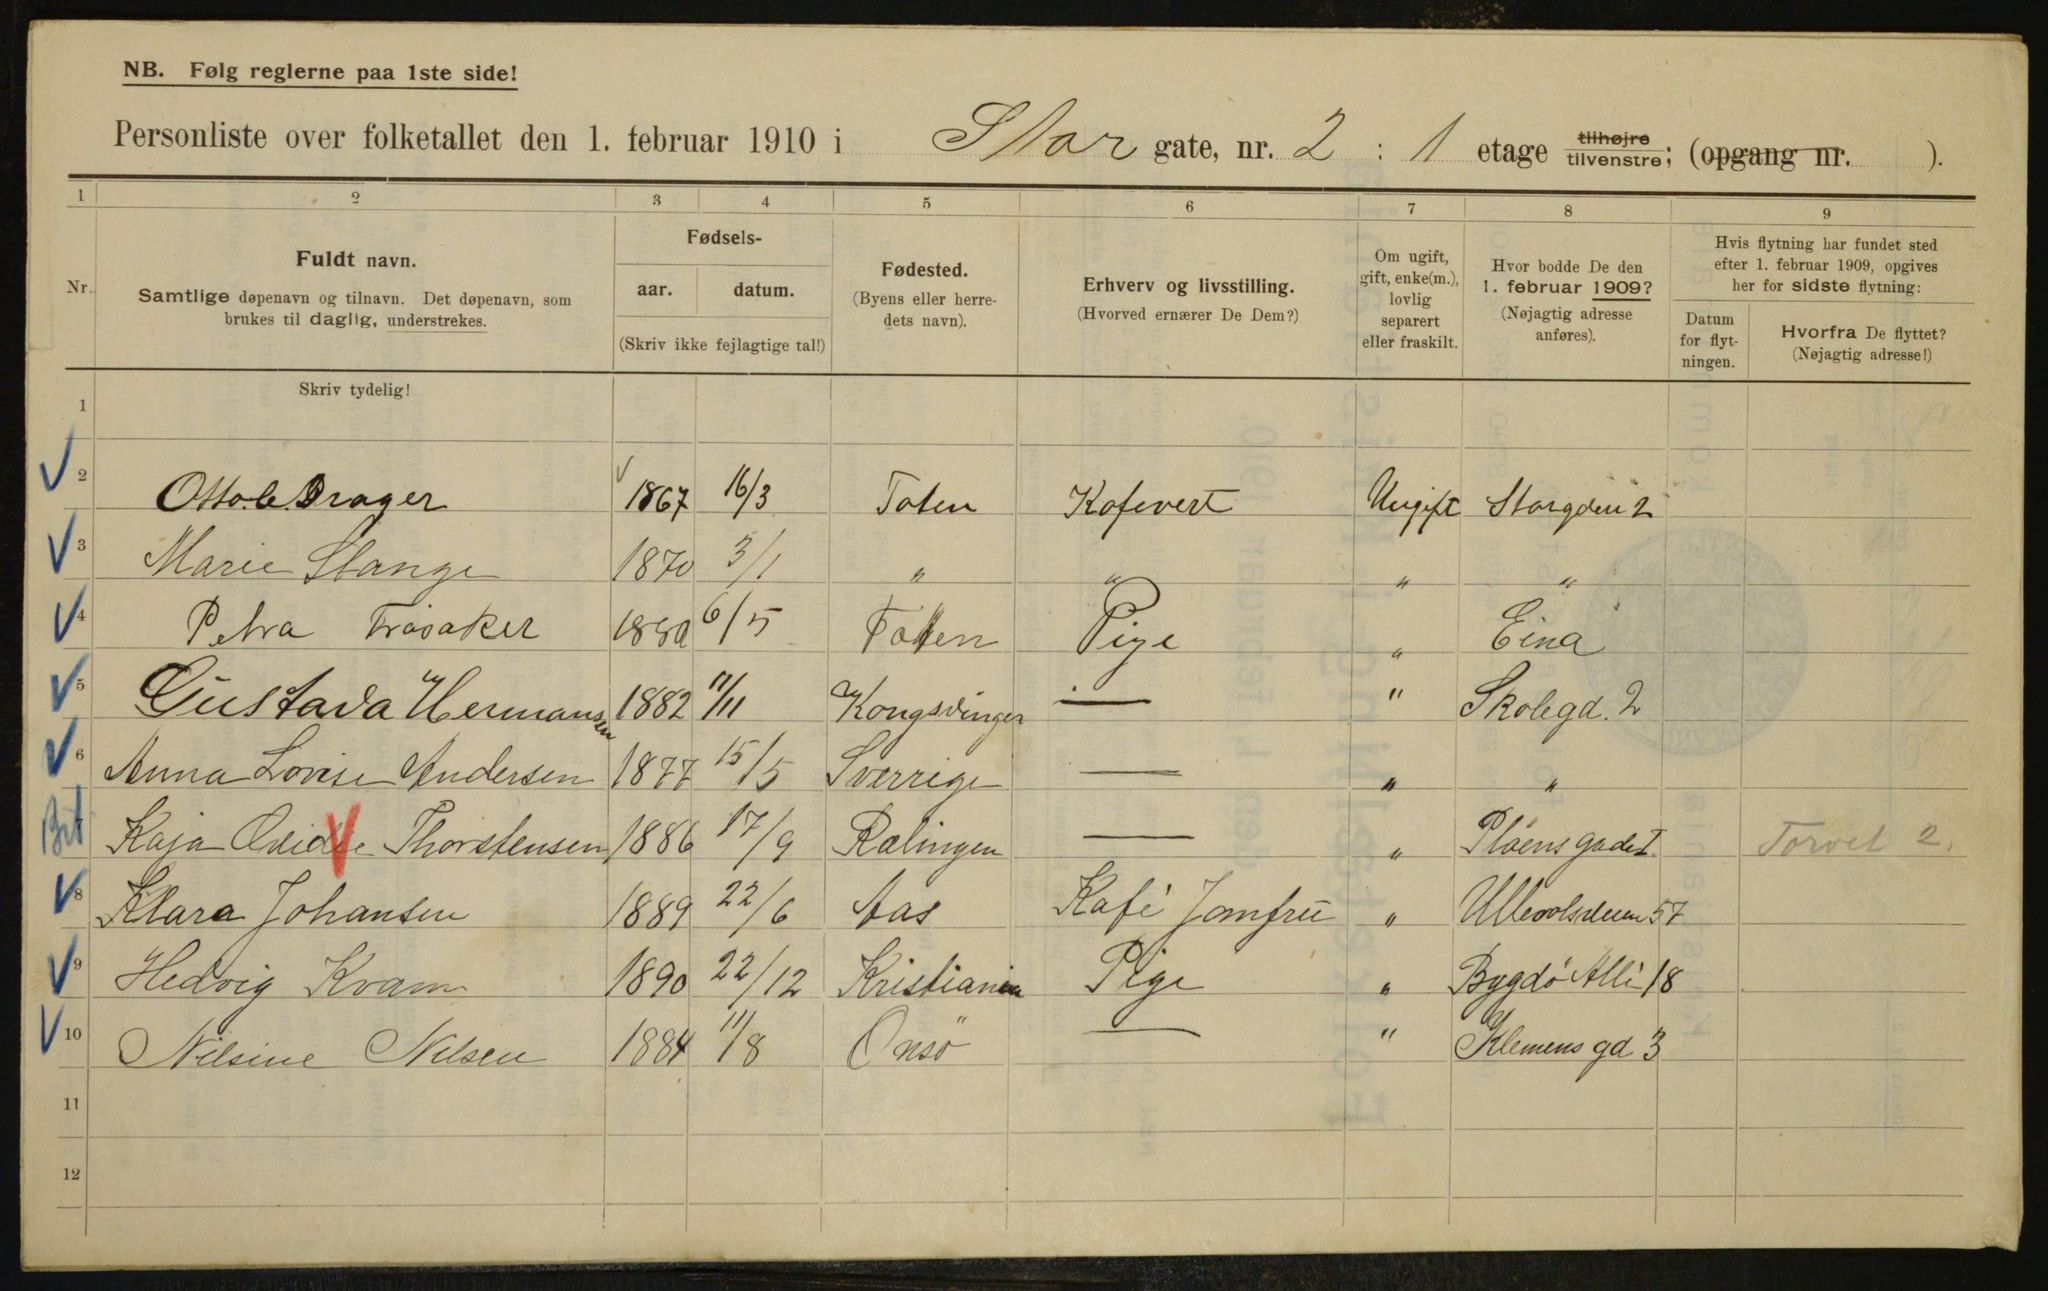 NB. Følg reglerne paa 1ste side!
Personliste over folketallet den 1. februar 1910 i Stor gate, nr. 2 : 1 etage tilhøjre tilvenstre; (opgang nr. ).
1 2 3 4 5 6 7 8 9
Nr.
Fuldt navn.
Samtlige døpenavn og tilnavn. Det døpenavn, som
brukes til daglig, understrekes.
Skriv tydelig!
Fødsels-
aar. datum.
(Skriv ikke fejlagtige tal!)
Fødested.
(Byens eller herre-
dets navn).
Erhverv og livsstilling.
(Hvorved ernærer De Dem?)
Om ugift,
gift, enke(m.),
lovlig
separert
eller fraskilt.
Hvor bodde De den
1. februar 1909?
(Nøjagtig adresse
anføres).
Hvis flytning har fundet sted
efter 1. februar 1909, opgives
her for sidste flytning:
Datum
for flyt-
ningen.
Hvorfra De flyttet?
(Nøjagtig adresse!)
1
2 Drager 1867 16/3 Toten Kafevert Ugift Storgden 2
3 Marie Stange 1870 3/1 " " " "
4 Petra Fråsaker 1880 6/5 Toten Pige " Eina
5 Gustava Hermansen 1882 11/11 Kongsvinger — " Skolegd. 2
6 Anna Lovise Andersen 1877 15/5 Sverrige — " "
Kaja Thorstensen 1886 17/9 Rælingen — " Pløens gade 1 Torvet 2.
8 Klara Johansen 1889 22/6 Aas Kafé Jomfru " Ullevolsveien 57
9 Hedvig Kvam 1890 22/12 Kristiania Pige " Bygdö Alli 18
10 Nilsine Nilsen 1884 11/8 Onsö — " Klemens gd 3
11
12